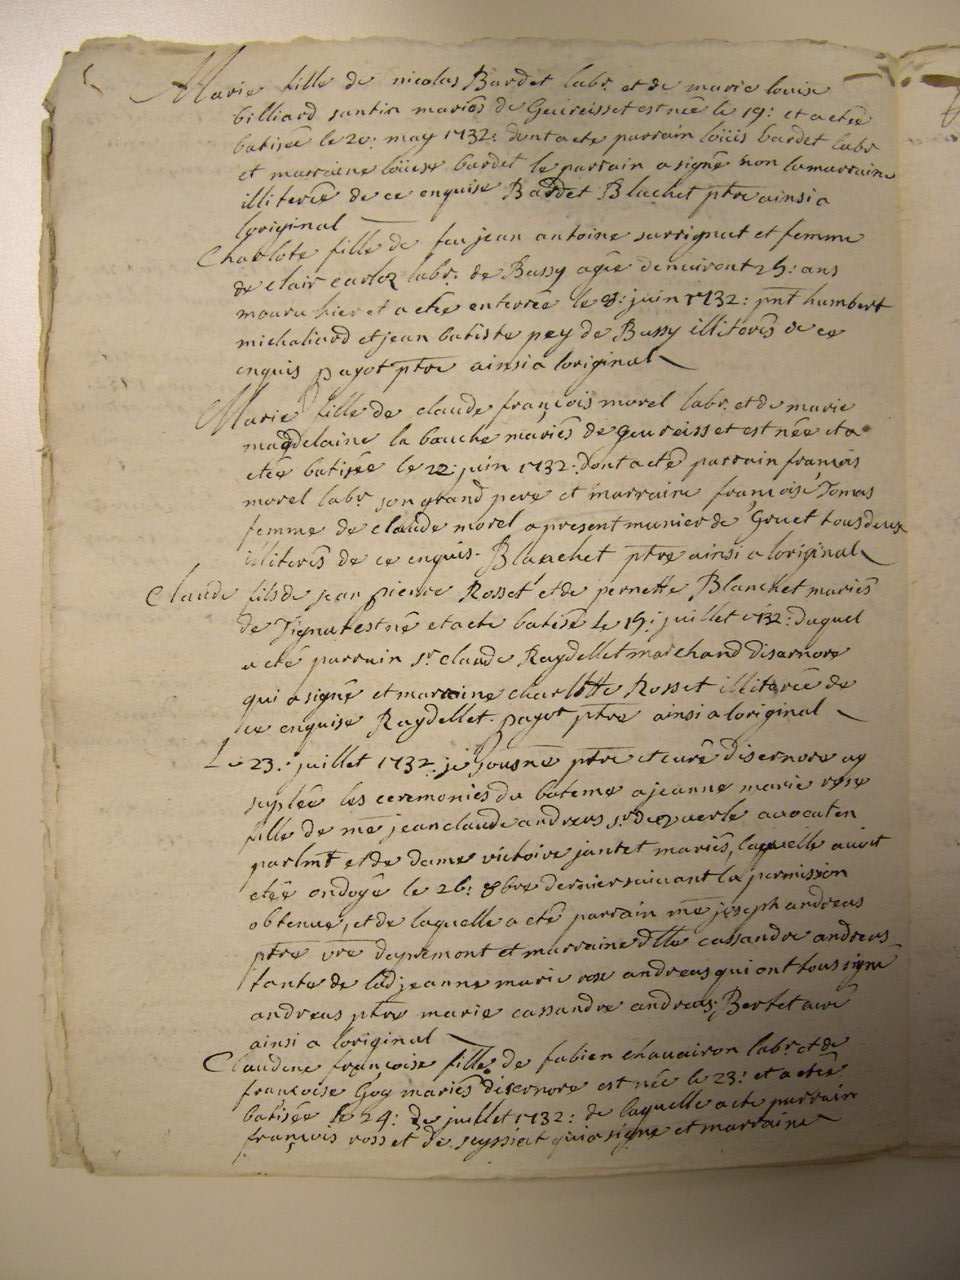 Marie fille de nicolas Bardet labr. et de marie louise
billiard santin mariés de Geureisset est née le 19: et a eteé
batisée le 20: may 1732: dont a ete parrain loüis bardet labr
et marraine loüise bardet le parrain a signé non la marraine
illiterée de ce enquise Bardet Blachet ptre ainsi a
loriginal
Charlote fille de feu jean antoine sarrignat et femme
de clair carloz labr. de Bussy agée denviront 25: ans
mouru hier et a eté enterrée le 8: juin 1732: pnt humbert
michaliard et jean batiste pey de Bussy illiterés de ce
enquis payot ptre ainsi a loriginal
Marie fille de claude françois morel labr. et de marie
magdelaine la bouche mariés de Geureisset est née et a
eteé batisée le 22: juin 1732: dont a eté parrain françois
morel labr son grand pere et marraine françoise Tomas
femme de claude morel a present munier de Gruet tous deux
illiterés de ce enquis. Blanchet ptre ainsi a loriginal
Claude fils de jean pierre Rosset et de pernette Blanchet mariés
de est né et a ete batisé le 15: juillet 1732: duquel
a eté parrain sr. claude Raydellet marchand disernore
qui a signé et marraine charlotte Rosset illiterée de
ce enquise Raydellet. payot ptre ainsi a loriginal
Le 23: juillet 1732: je sousné ptre et curé disernore ay
supleé les ceremonies du bateme a jeanne marie rose
fille de me jean claude andreus sr de avocat en
parlmt et de dame victoire jantet mariés, laquelle avoit
eteé ondoyé le 26: 8bre dernier suivant la permission
obtenue, et de laquelle a eté parrain me joseph andreus
ptre vre dapremont et marraine dlle cassandre andreus
tante de lad jeanne marie rose andreus qui ont tous signé
andreus ptre marie cassandre andreus, Bertet curé
ainsi a loriginal
Claudine françoise fille de fabien chavairon labr. et de
françoise Goy mariés disernore est née le 23: et a eteé
batisée le 24: de juillet 1732: de laquelle a ete parrain
françois rosset de seyssiat qui a signé et marraine